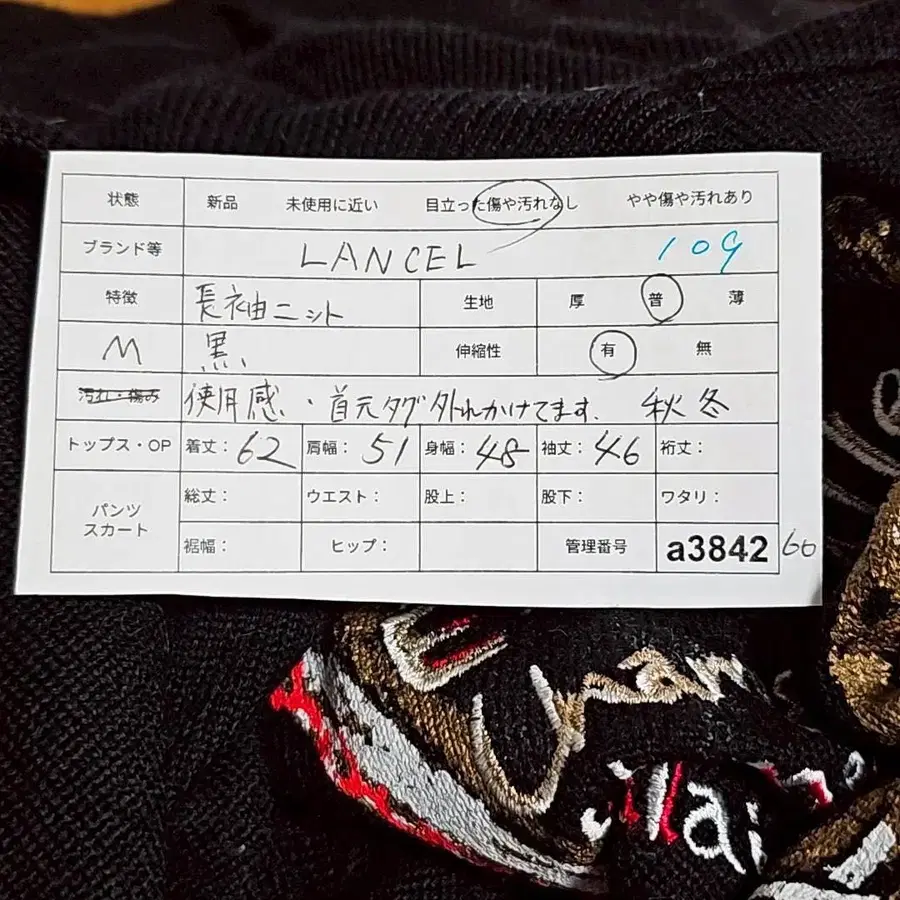 状態 新品 未使用に近い 目立った傷や汚れなし やや傷や汚れあり
ブランド等 LANCEL 109
特徴 長袖ニット 生地 厚 普 薄
M 黒 伸縮性 有 無
汚れ・傷み 使用感・首元タグ外れかけてます。 秋冬
トップス・OP 着丈：62 肩幅：51 身幅：48 袖丈：46 裄丈：
パンツ スカート 総丈： ウエスト： 股上： 股下： ワタリ：
裾幅： ヒップ： 管理番号 a3842 60